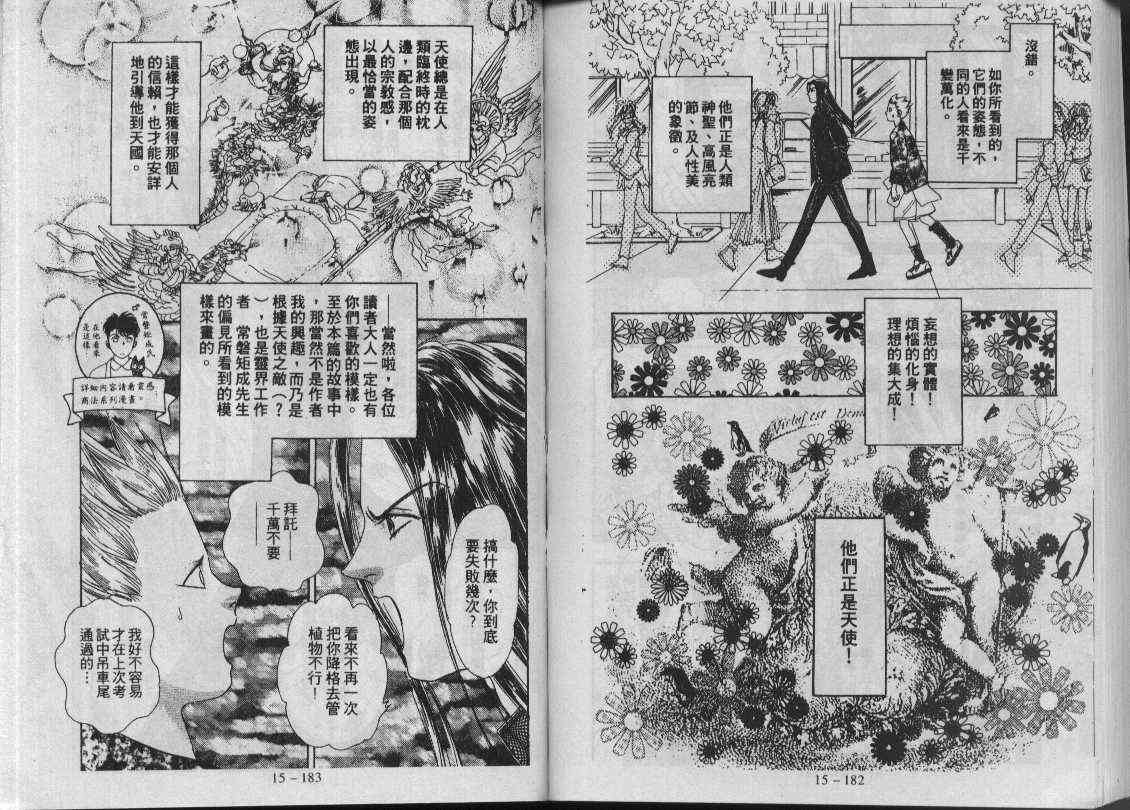 沒錯。
如你所看到的，
它們的姿態，不
同的人看來是千
變萬化。
他們正是人類
神聖、高風亮
節、及人性美
的象徵。
妄想的實體！
煩惱的化身！
理想的集大成！
他們正是天使！
15－182
天使總是在人
類臨終時的枕
邊，配合那個
人的宗教感，
以最恰當的姿
態出現。
這樣才能獲得那個人
的信賴，也才能安詳
地引導他到天國。
——當然啦，各位
讀者大人一定也有
你們喜歡的模樣。
至於本篇的故事中
，那當然不是作者
我的興趣，而乃是
根據天使之敵（？
），也是靈界工作
者　常磐矩成先生
的偏見所看到的模
樣來畫的。
常磐矩成氏
在他看來
是這樣
詳細內容請看靈感
商法系列漫畫。
搞什麼，你到底
要失敗幾次？
拜託——
千萬不要——
看來不再一次
把你降格去管
植物不行！
我好不容易
才在上次考
試中吊車尾
通過的…
15－183